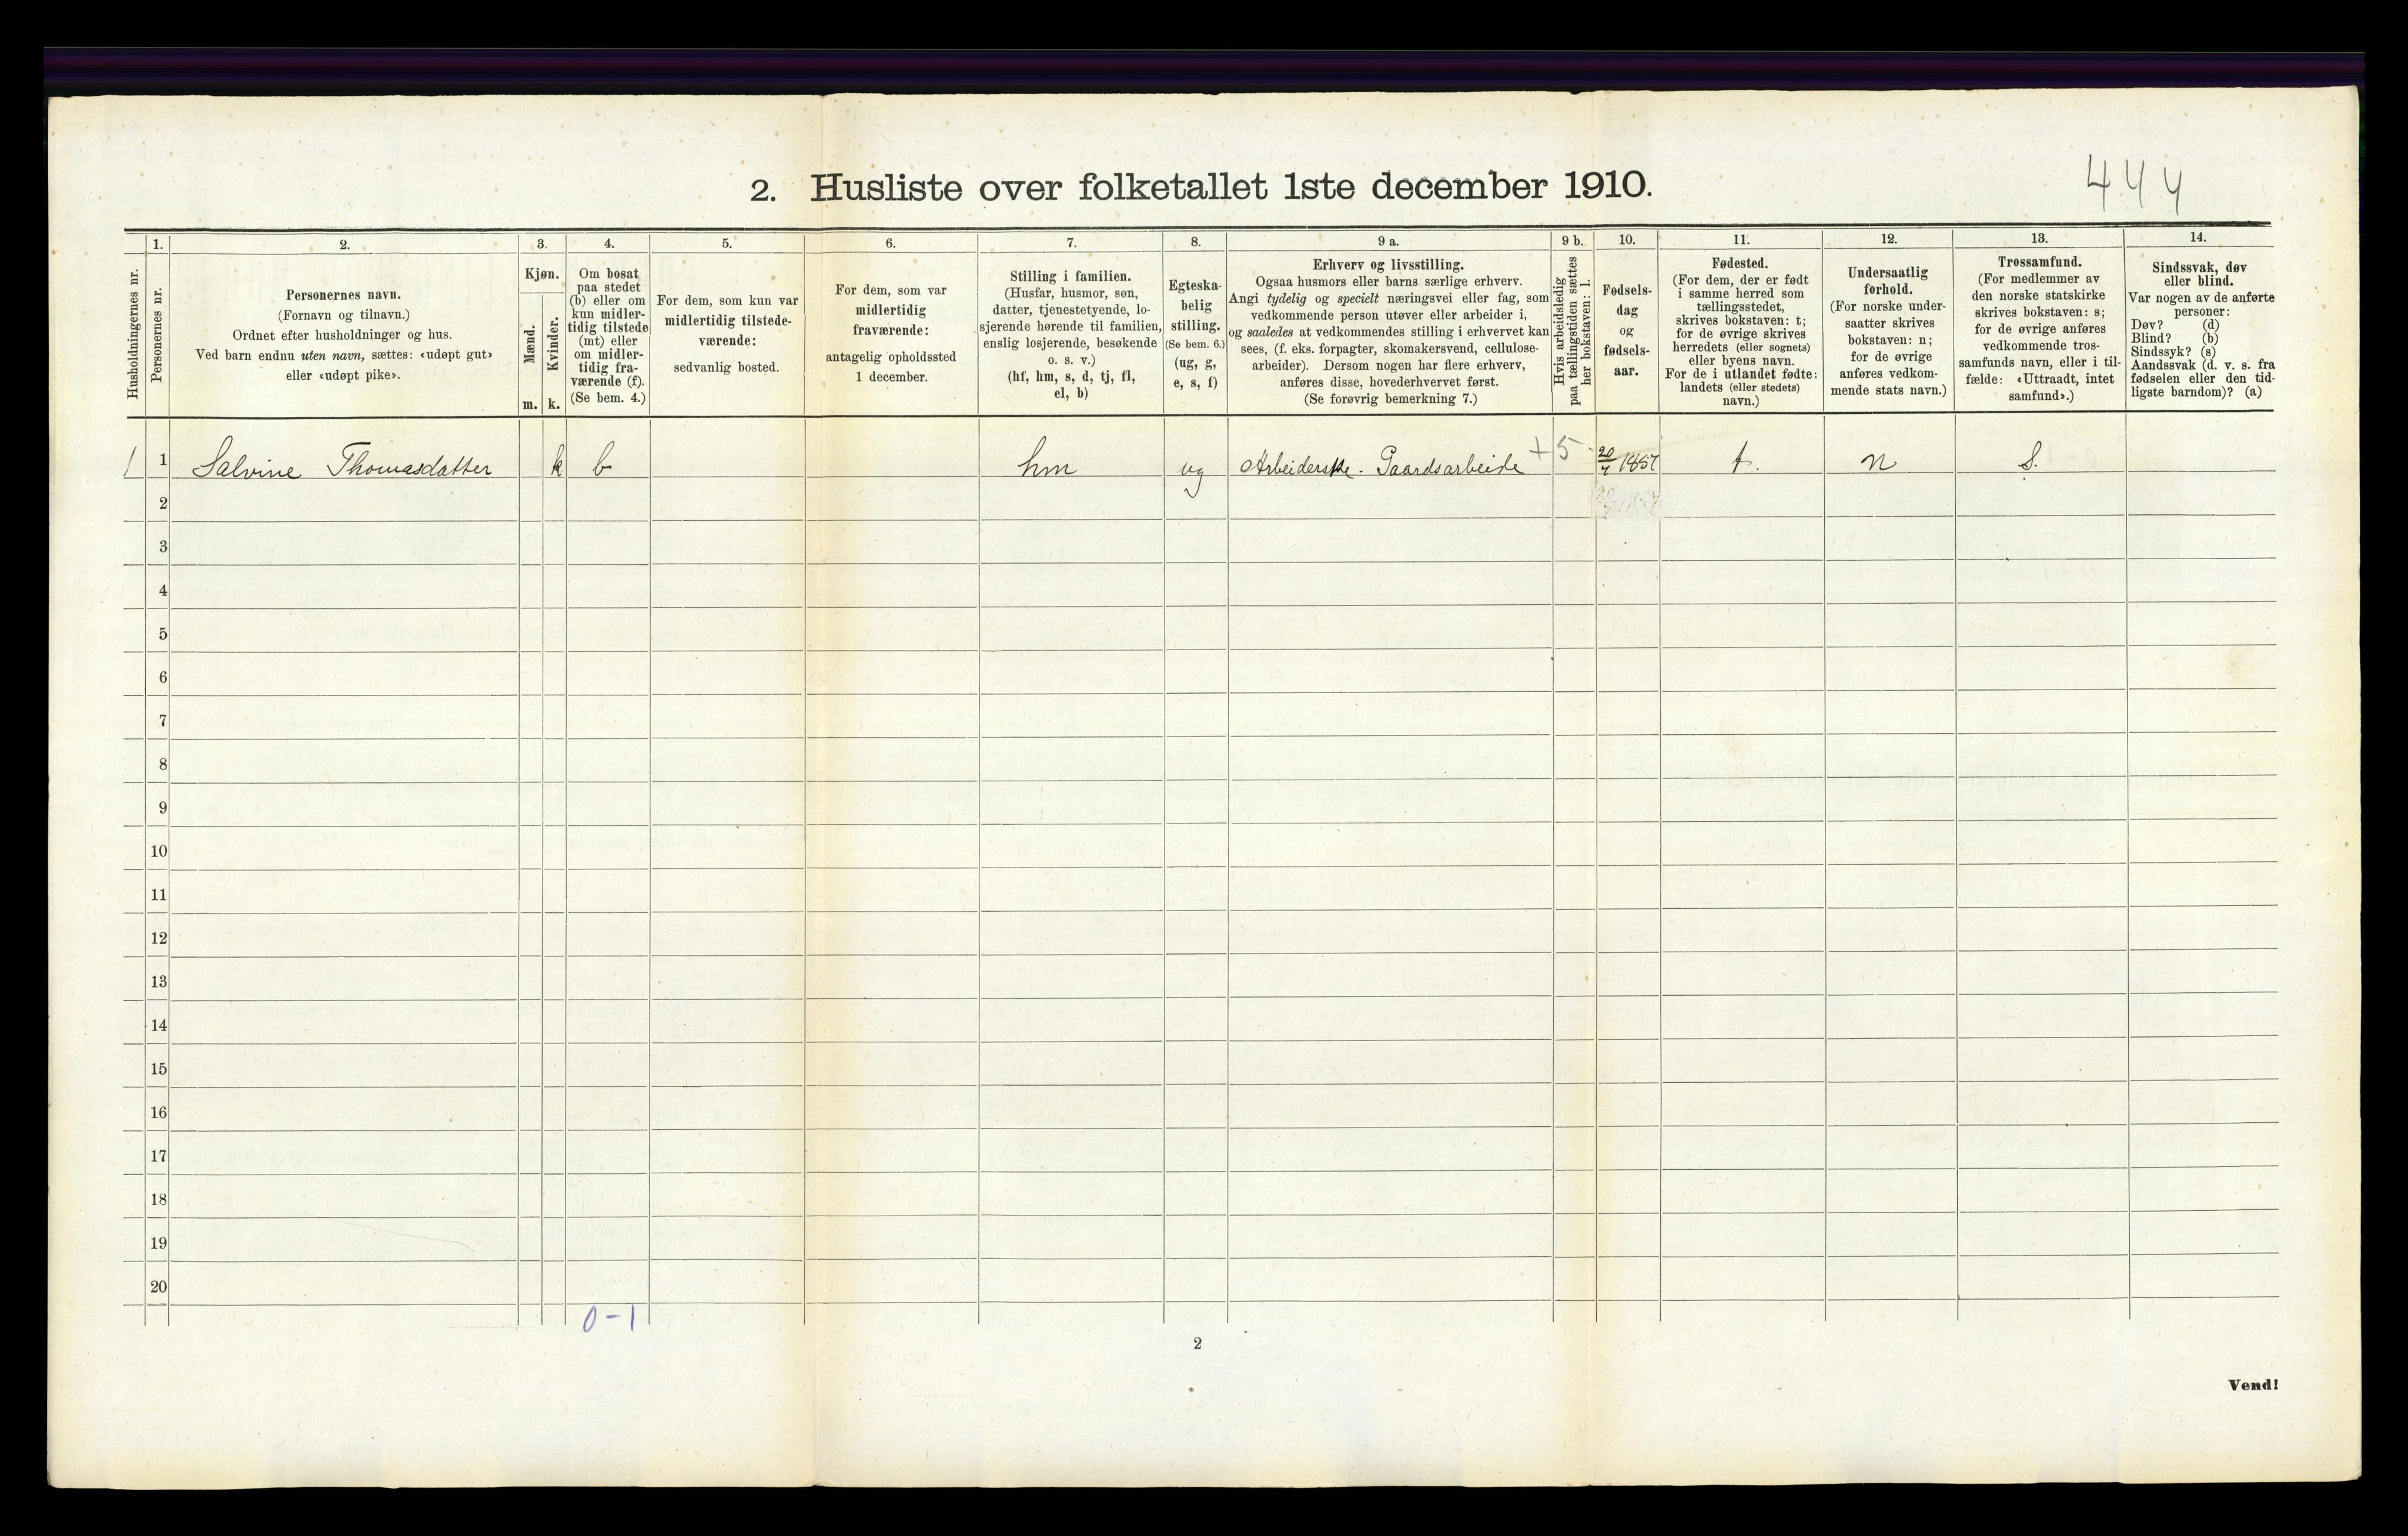 2. Husliste over folketallet 1ste december 1910.
444
Husholdningernes nr.
1.
Personernes nr.
2.
Personernes navn.
(Fornavn og tilnavn.)
Ordnet efter husholdninger og hus.
Ved barn endnu uten navn, sættes: «udøpt gut»
eller «udøpt pike».
3.
Kjøn.
Mænd.
m.
Kvinder.
k.
4.
Om bosat
paa stedet
(b) eller om
kun midler-
tidig tilstede
(mt) eller
om midler-
tidig fra-
værende (f).
(Se bem. 4.)
5.
For dem, som kun var
midlertidig tilstede-
værende:
sedvanlig bosted.
6.
For dem, som var
midlertidig
fraværende:
antagelig opholdssted
1 december.
7.
Stilling i familien.
(Husfar, husmor, søn,
datter, tjenestetyende, lo-
sjerende hørende til familien,
enslig losjerende, besøkende
o. s. v.)
(hf, hm, s, d, tj, fl,
el, b)
8.
Egteska-
belig
stilling.
(Se bem. 6.)
(ug, g,
e, s, f)
9 a.
Erhverv og livsstilling.
Ogsaa husmors eller barns særlige erhverv.
Angi tydelig og specielt næringsvei eller fag, som
vedkommende person utøver eller arbeider i,
og saaledes at vedkommendes stilling i erhvervet kan
sees, (f. eks. forpagter, skomakersvend, cellulose-
arbeider). Dersom nogen har flere erhverv,
anføres disse, hovederhvervet først.
(Se forøvrig bemerkning 7.)
9 b.
Hvis arbeidsledig
paa tællingstiden sættes
her bokstaven: l.
10.
Fødsels-
dag
og
fødsels-
aar.
11.
Fødested.
(For dem, der er født
i samme herred som
tællingsstedet,
skrives bokstaven: t;
for de øvrige skrives
herredets (eller sognets)
eller byens navn.
For de i utlandet fødte:
landets (eller stedets)
navn.)
12.
Undersaatlig
forhold.
(For norske under-
saatter skrives
bokstaven: n;
for de øvrige
anføres vedkom-
mende stats navn.)
13.
Trossamfund.
(For medlemmer av
den norske statskirke
skrives bokstaven: s;
for de øvrige anføres
vedkommende tros-
samfunds navn, eller i til-
fælde: «Uttraadt, intet
samfund».)
14.
Sindssvak, døv
eller blind.
Var nogen av de anførte
personer:
Døv? (d)
Blind? (b)
Sindssyk? (s)
Aandssvak (d. v. s. fra
fødselen eller den tid-
ligste barndom)? (a)
1 1 Salvine Thomasdatter k b hm ug Arbeiderske. Gaardsarbeide +5 20/7 1857 t. n s.
2
3
4
5
6
7
8
9
10
11
12
13
14
15
16
17
18
19
20
0-1
2
Vend!